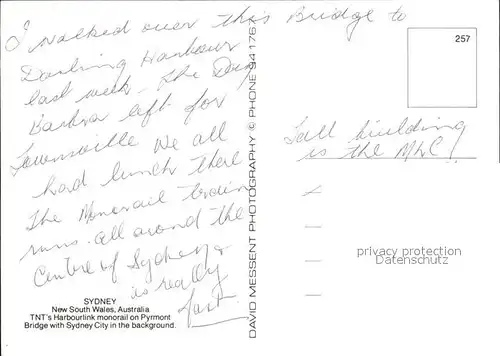 I walked over this Bridge to
Darling Harbour
last week - the Day
Barbra left for
Townsville We all
had lunch there
The Monorail train
runs all around the
Centre of Sydney &
is really
fast
SYDNEY
New South Wales, Australia
TNT's Harbourlink monorail on Pyrmont
Bridge with Sydney City in the background.
DAVID MESSENT PHOTOGRAPHY © PHONE 94 1764
257
Tall building
is the MLC!
privacy protection
Datenschutz